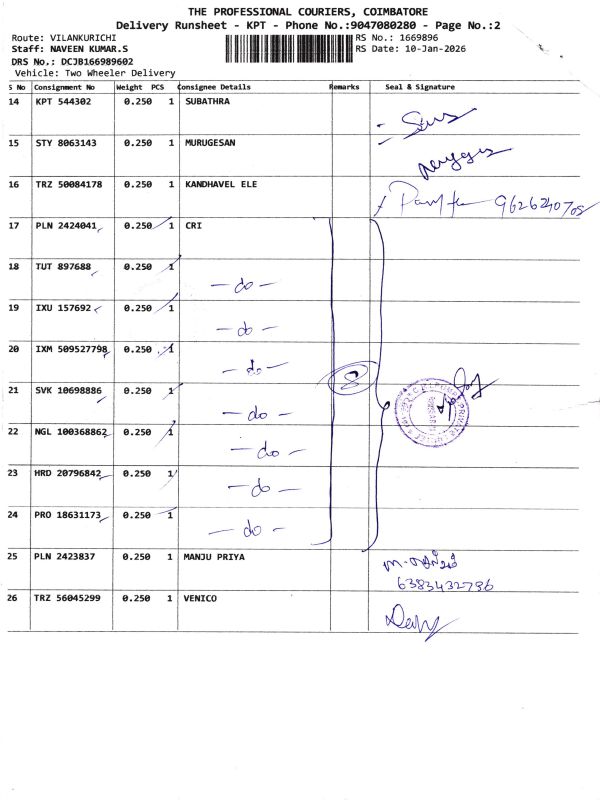 THE PROFESSIONAL COURIERS, COIMBATORE
Delivery Runsheet - KPT - Phone No.:9047080280 - Page No.:2
Route: VILANKURICHI
RS No.: 1669896
Staff: NAVEEN KUMAR.S
RS Date: 10-Jan-2026
DRS No.: DCJB166989602
Vehicle: Two Wheeler Delivery
S No Consignment No Weight PCS Consignee Details Remarks Seal & Signature
14 KPT 544302 0.250 1 SUBATHRA
15 STY 8063143 0.250 1 MURUGESAN
16 TRZ 50084178 0.250 1 KANDHAVEL ELE
17 PLN 2424041 0.250 1 CRI
18 TUT 897688 0.250 1 - do -
19 IXU 157692 0.250 1 - do -
20 IXM 509527798 0.250 1 - do - 8
21 SVK 10698886 0.250 1 - do -
22 NGL 100368862 0.250 1 - do -
23 HRD 20796842 0.250 1 - do -
24 PRO 18631173 0.250 1 - do -
25 PLN 2423837 0.250 1 MANJU PRIYA
6383432796
26 TRZ 56045299 0.250 1 VENICO